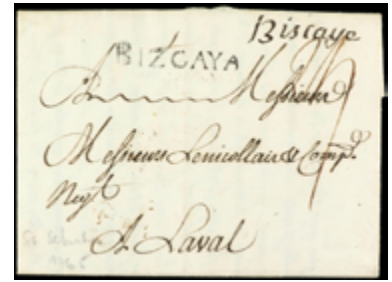 Biscaye
BIZCAYA
A Messieurs
Messieurs Lenicollais & Comp.e
Neg.t
A Laval